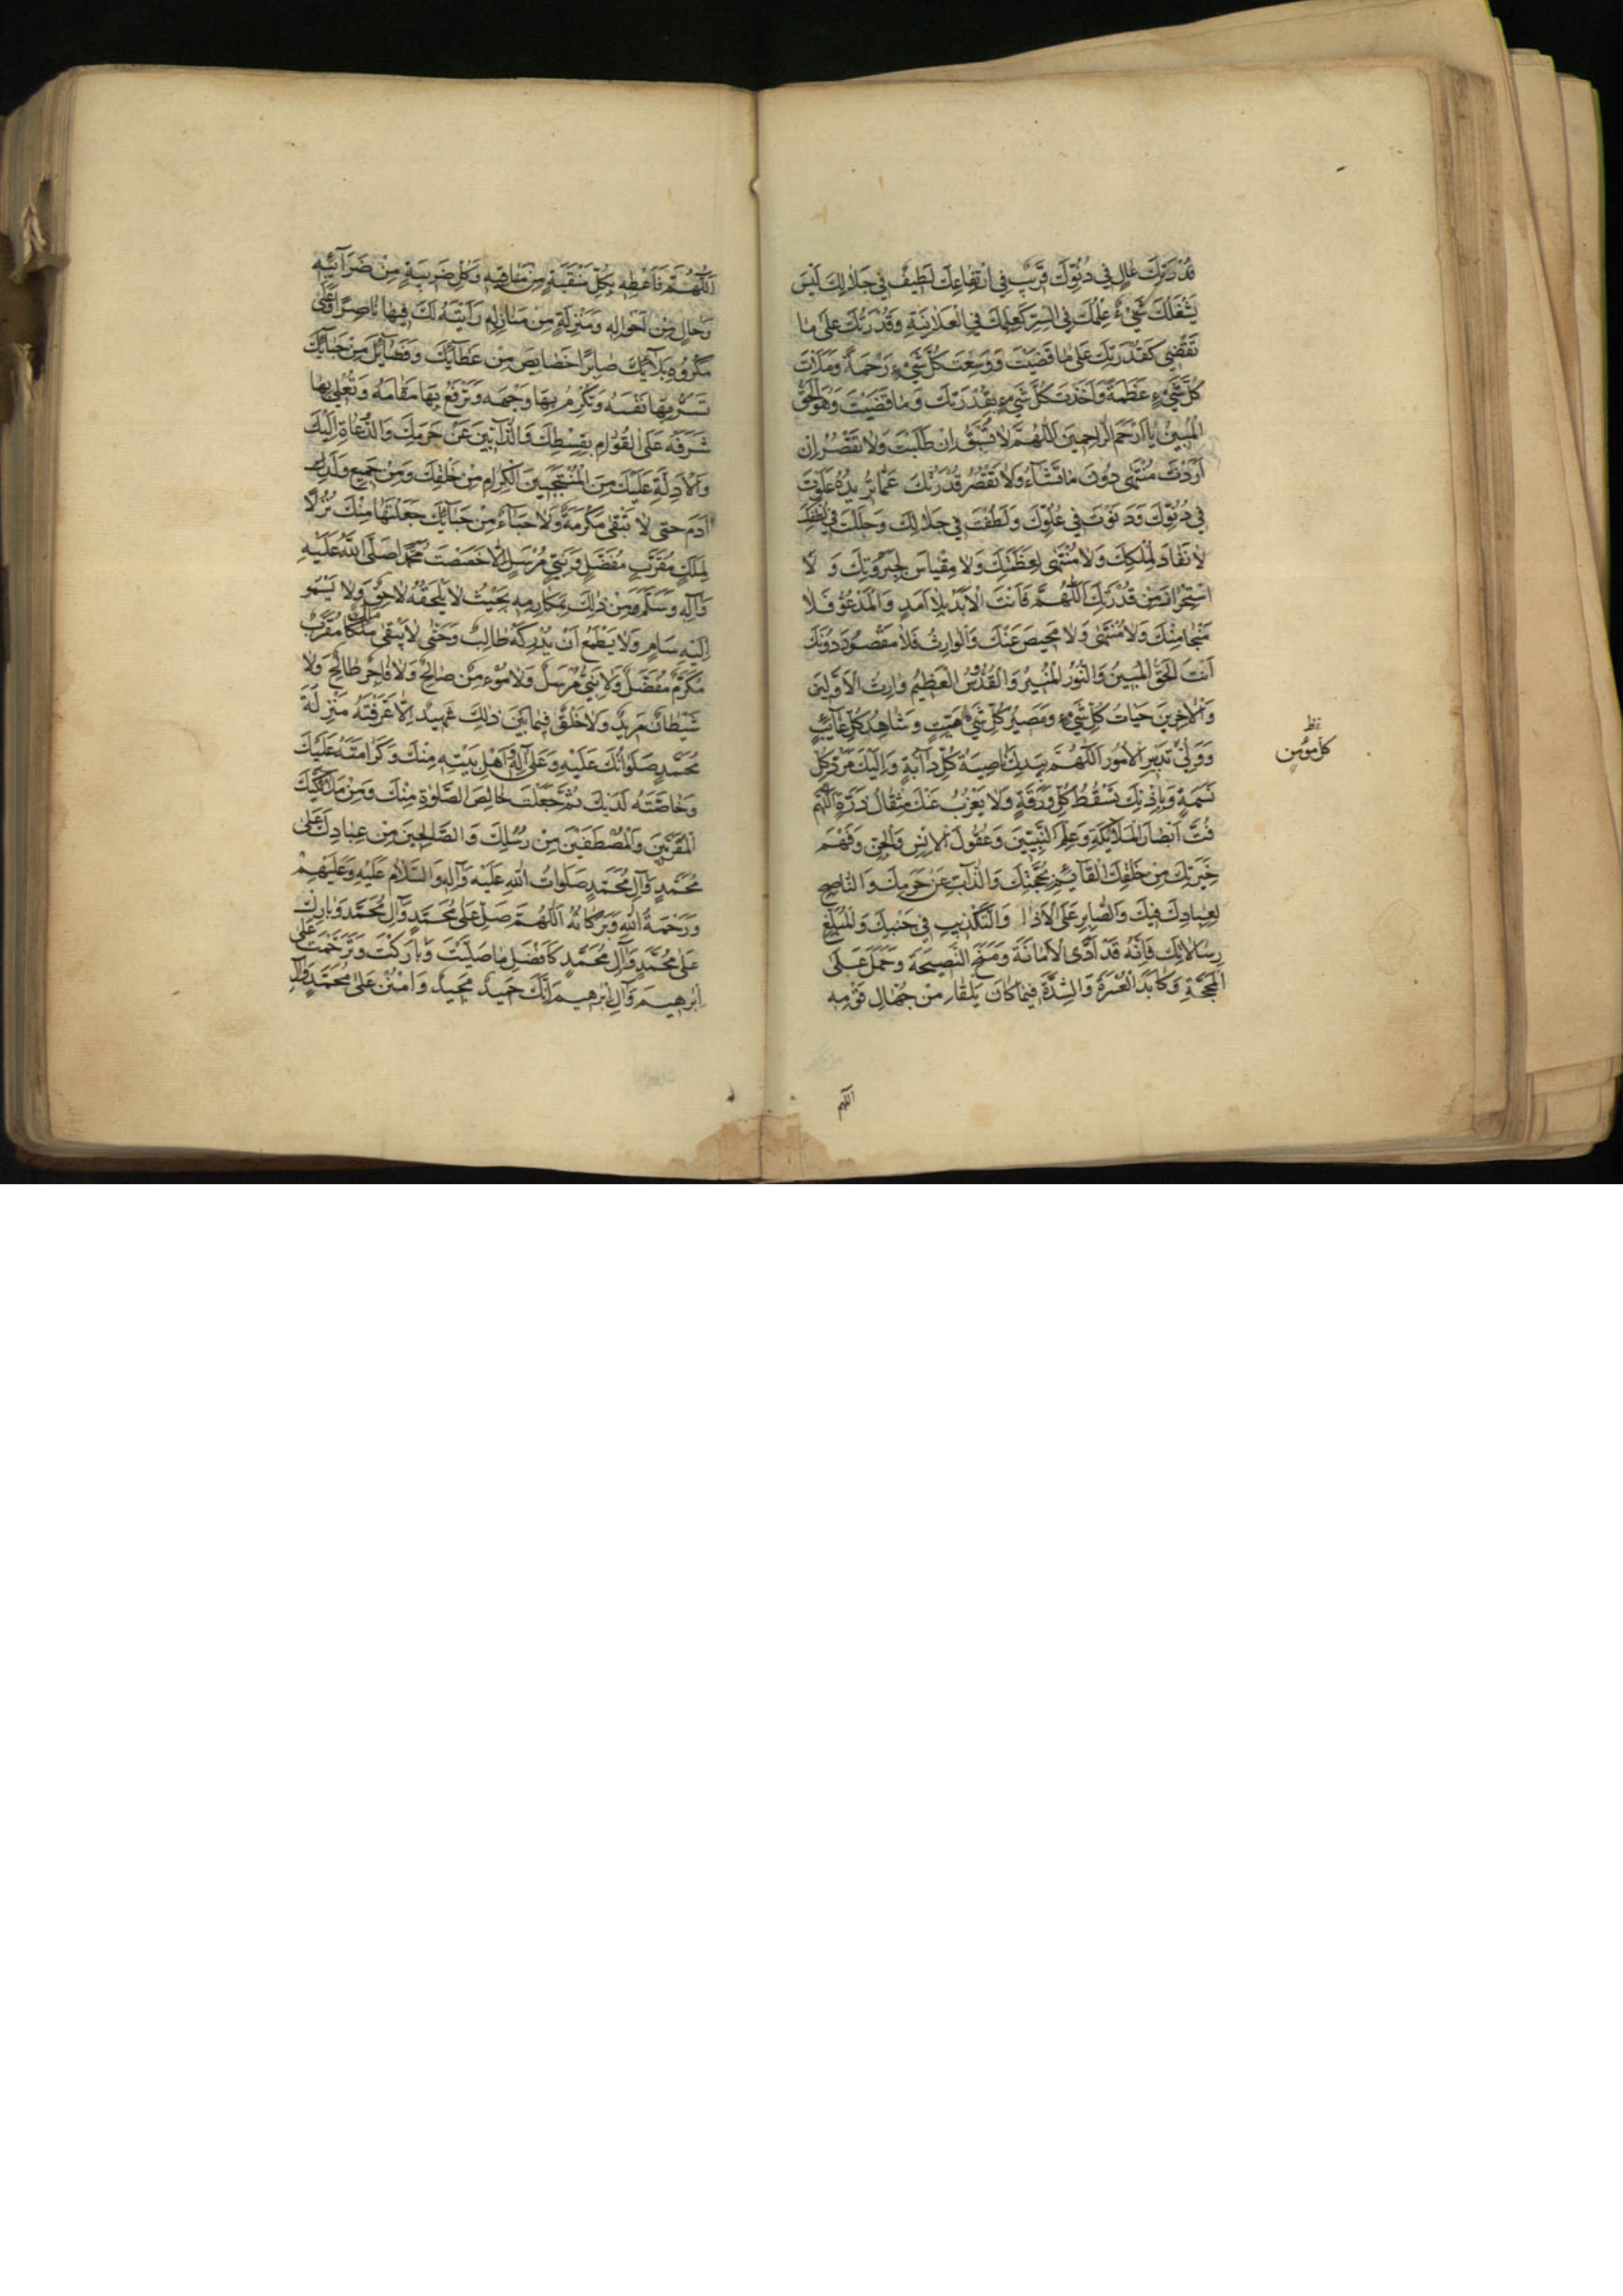 قُدْرَتِكَ عَالٍ فِي دُنُوِّكَ قَرِيبٌ فِي ارْتِفَاعِكَ لَطِيفٌ فِي جَلَالِكَ لَيْسَ
يَشْغَلُكَ شَيْءٌ عِلْمُكَ فِي السِّرِّ كَعِلْمِكَ فِي الْعَلَانِيَةِ وَقُدْرَتُكَ عَلَى مَا
تَقْضِي كَقُدْرَتِكَ عَلَى مَا قَضَيْتَ وَوَسِعْتَ كُلَّ شَيْءٍ رَحْمَةً وَمَلَأْتَ
كُلَّ شَيْءٍ عَظَمَةً وَأَخَذْتَ كُلَّ شَيْءٍ بِقُدْرَتِكَ وَمَا قَضَيْتَ وَهُوَ الْحَقُّ
الْمُبِينُ يَا أَرْحَمَ الرَّاحِمِينَ اللَّهُمَّ لَا تُسْبَقُ إِنْ طَلَبْتَ وَلَا تَقْصُرُ إِنْ
أَرَدْتَ مُنْتَهَى دُونَ مَا تَشَاءُ وَلَا تَقْصُرُ قُدْرَتُكَ عَمَّا تُرِيدُهُ عَلَوْتَ
فِي دُنُوِّكَ وَدَنَوْتَ فِي عُلُوِّكَ وَلَطُفْتَ فِي جَلَالِكَ وَجَلَلْتَ فِي لُطْفِكَ
لَا نَفَادَ لِمُلْكِكَ وَلَا مُنْتَهَى لِعَظَمَتِكَ وَلَا مِقْيَاسَ لِجَبَرُوتِكَ وَ لَا
اسْتِحْرَازَ مِنْ قُدْرَتِكَ اللَّهُمَّ فَأَنْتَ الْأَبَدُ بِلَا أَمَدٍ وَالْمَدْعُوُّ فَلَا
مَنْجَا مِنْكَ وَلَا مُنْتَهَى وَلَا مَحِيصَ عَنْكَ وَالْوَارِثُ فَلَا مَقْصُودَ دُونَكَ
أَنْتَ الْحَقُّ الْمُبِينُ وَالنُّورُ الْمُنِيرُ وَالْقُدُّوسُ الْعَظِيمُ وَارِثُ الْأَوَّلِينَ
وَالْآخِرِينَ حَيَاتُ كُلِّ شَيْءٍ وَمَصِيرُ كُلِّ شَيْءٍ مَيِّتٍ وَشَاهِدُ كُلِّ غَائِبٍ
وَوَلِيُّ تَدْبِيرِ الْأُمُورِ اللَّهُمَّ بِيَدِكَ نَاصِيَةُ كُلِّ دَابَّةٍ وَإِلَيْكَ مَرَدُّ كُلِّ
نَسَمَةٍ وَبِإِذْنِكَ تَسْقُطُ كُلُّ وَرَقَةٍ وَلَا يَعْزُبُ عَنْكَ مِثْقَالُ ذَرَّةٍ اللَّهُمَّ
فُتَّ أَبْصَارَ الْمَلَائِكَةِ وَعِلْمَ النَّبِيِّينَ وَعُقُولَ الْإِنْسِ وَالْجِنِّ وَفَهْمَ
خِيَرَتِكَ مِنْ خَلْقِكَ الْقَائِمِ بِحُجَّتِكَ وَالذَّابِّ عَنْ حَرَمِكَ وَالنَّاصِحِ
لِعِبَادِكَ فِيكَ وَالصَّابِرِ عَلَى الْأَذَا وَالتَّكْذِيبِ فِي جَنْبِكَ وَالْمُبَلِّغِ
رِسَالَاتِكَ فَإِنَّهُ قَدْ أَدَّى الْأَمَانَةَ وَمَنَحَ النَّصِيحَةَ وَحَمَلَ عَلَى
الْمَحَجَّةِ وَكَابَدَ الْعُسْرَةَ وَالشِّدَّةَ فِيمَا كَانَ يَلْقَا مِنْ جُهَّالِ قَوْمِهِ
كل مؤمن
اللهم
اللَّهُمَّ فَأَعْطِهِ بِكُلِّ مَنْقَبَةٍ مِنْ مَنَاقِبِهِ وَكُلِّ ضَرِيبَةٍ مِنْ ضَرَائِبِهِ
وَحَالٍ مِنْ أَحْوَالِهِ وَمَنْزِلَةٍ مِنْ مَنَازِلِهِ رَأَيْتَهُ لَكَ فِيهَا نَاصِرًا وَعَلَى
مَكْرُوهِ بَلَائِكَ صَابِرًا خَصَايِصَ مِنْ عَطَائِكَ وَفَضَائِلَ مِنْ حَبَائِكَ
تَسُرُّ بِهَا نَفْسَهُ وَتُكْرِمُ بِهَا وَجْهَهُ وَتَرْفَعُ بِهَا مَقَامَهُ وَتُعْلِي بِهَا
شَرَفَهُ عَلَى الْقُوَّامِ بِقِسْطِكَ وَالذَّابِّينَ عَنْ حَرَمِكَ وَالدُّعَاةِ إِلَيْكَ
وَالْأَدِلَّةِ عَلَيْكَ مِنَ الْمُنْتَجَبِينَ الْكِرَامِ مِنْ خَلْقِكَ وَمِنْ جَمِيعِ وُلْدِ
آدَمَ حَتَّى لَا تَبْقَى مَكْرُمَةٌ وَلَا حَبَاءٌ مِنْ حَبَائِكَ جَعَلْتَهَا مِنْكَ نُزُلًا
لِمَلَكٍ مُقَرَّبٍ مُفَضَّلٍ وَنَبِيٍّ مُرْسَلٍ إِلَّا خَصَصْتَ مُحَمَّدًا صَلَّى اللَّهُ عَلَيْهِ
وَآلِهِ وَسَلَّمَ مِنْ ذَلِكَ بِمَكَارِمِهِ بِحَيْثُ لَا يَلْحَقُهُ لَاحِقٌ وَلَا يَسْمُو
إِلَيْهِ سَامٍ وَلَا يَطْمَعُ أَنْ يُدْرِكَهُ طَالِبٌ وَحَتَّى لَا يَبْقَى مَلَكٌ مُقَرَّبٌ
مُكَرَّمٌ مُفَضَّلٌ وَلَا نَبِيٌّ مُرْسَلٌ وَلَا مُؤْمِنٌ صَالِحٌ وَلَا فَاجِرٌ طَالِحٌ وَلَا
شَيْطَانٌ مَرِيدٌ وَلَا خَلْقٌ فِيمَا بَيْنَ ذَلِكَ شَهِيدٌ إِلَّا عَرَّفْتَهُ مَنْزِلَةَ
مُحَمَّدٍ صَلَوَاتُكَ عَلَيْهِ وَعَلَى آلِهِ وَأَهْلِ بَيْتِهِ مِنْكَ وَكَرَامَتَهُ عَلَيْكَ
وَخَاصَّتَهُ لَدَيْكَ ثُمَّ جَعَلْتَ خَالِصَ الصَّلَوٰةِ مِنْكَ وَمِنْ مَلَائِكَتِكَ
الْمُقَرَّبِينَ وَالْمُصْطَفَيْنَ مِنْ رُسُلِكَ وَالصَّالِحِينَ مِنْ عِبَادِكَ عَلَى
مُحَمَّدٍ وَآلِ مُحَمَّدٍ صَلَوَاتُ اللَّهِ عَلَيْهِ وَآلِهِ وَالسَّلَامُ عَلَيْهِ وَعَلَيْهِمْ
وَرَحْمَةُ اللَّهِ وَبَرَكَاتُهُ اللَّهُمَّ صَلِّ عَلَى مُحَمَّدٍ وَآلِ مُحَمَّدٍ وَبَارِكْ
عَلَى مُحَمَّدٍ وَآلِ مُحَمَّدٍ كَأَفْضَلِ مَا صَلَّيْتَ وَبَارَكْتَ وَتَرَحَّمْتَ عَلَى
إِبْرٰهِيمَ وَآلِ إِبْرٰهِيمَ إِنَّكَ حَمِيدٌ مَجِيدٌ وَامْنُنْ عَلَى مُحَمَّدٍ وَآلِ